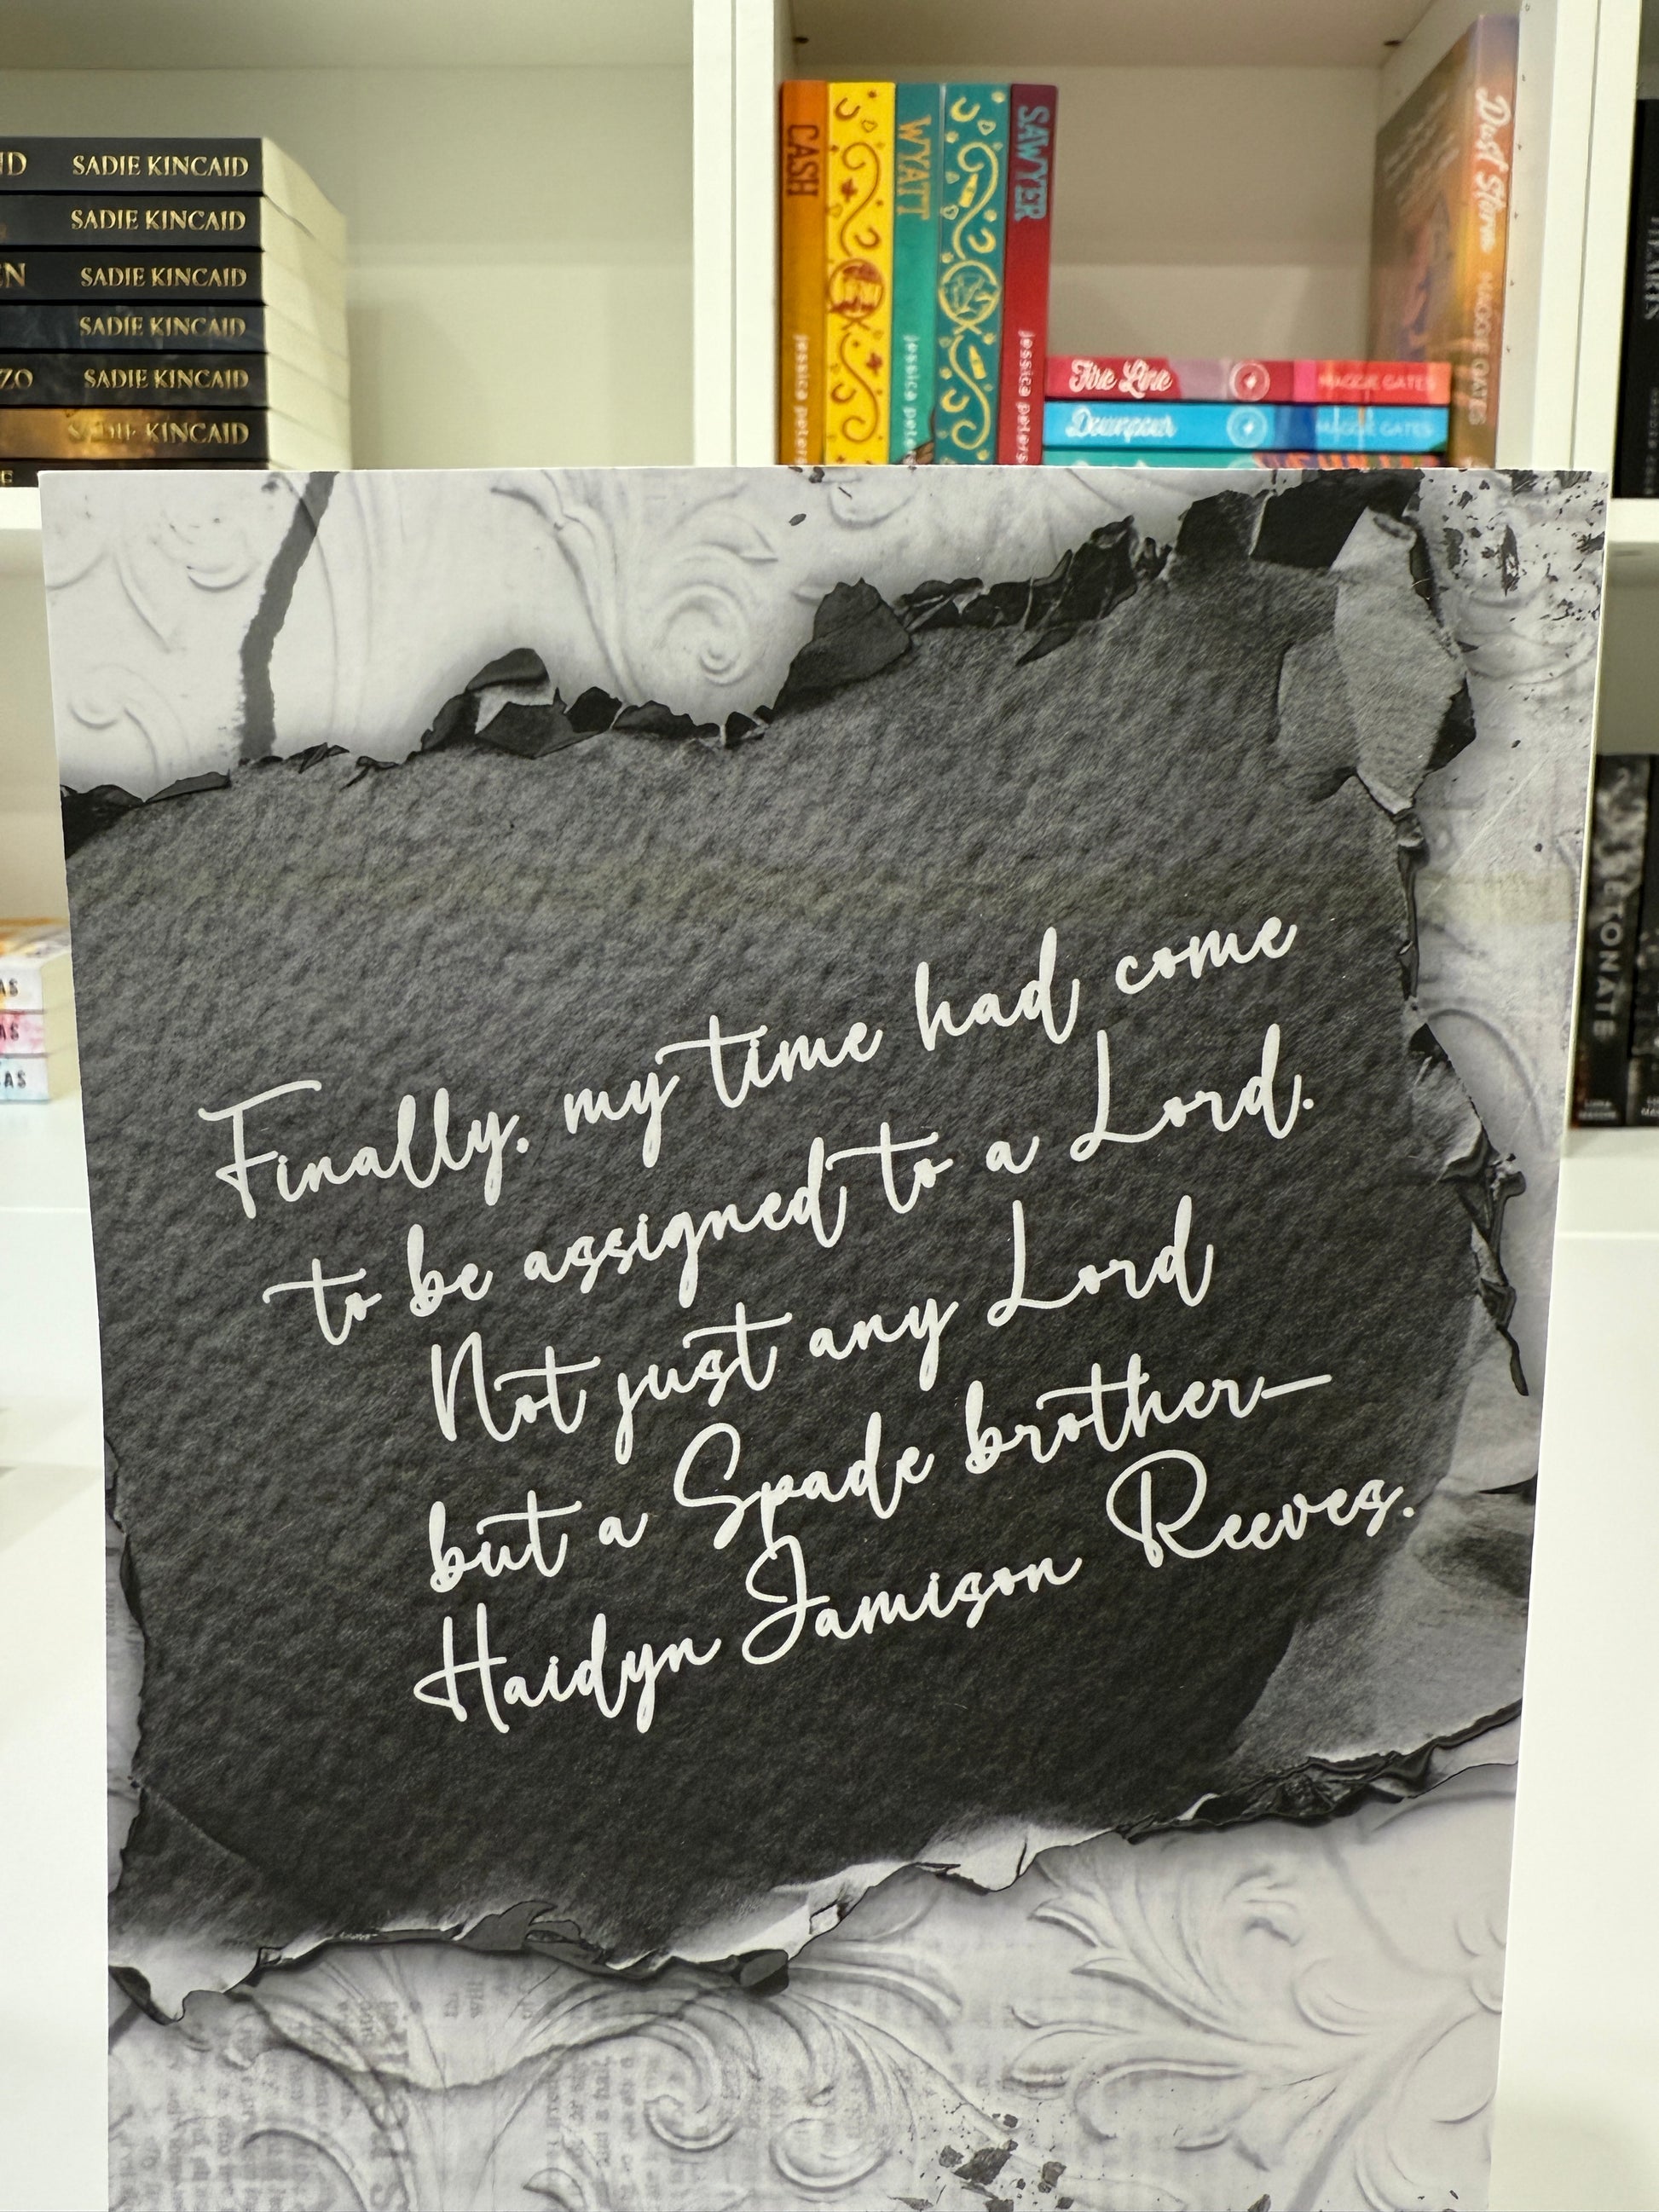 ND SADIE KINCAID
SADIE KINCAID
EN SADIE KINCAID
SADIE KINCAID
ZO SADIE KINCAID
SADIE KINCAID
CASH
WYATT
SAWYER
jessica peters
jessica peters
jessica peters
Fire Line MAGGIE GATES
Downpour MAGGIE GATES
Dust Storm MAGGIE GATES
AS
AS
AS
Finally, my time had come
to be assigned to a Lord.
Not just any Lord
but a Spade brother—
Haidyn Jamison Reeves.